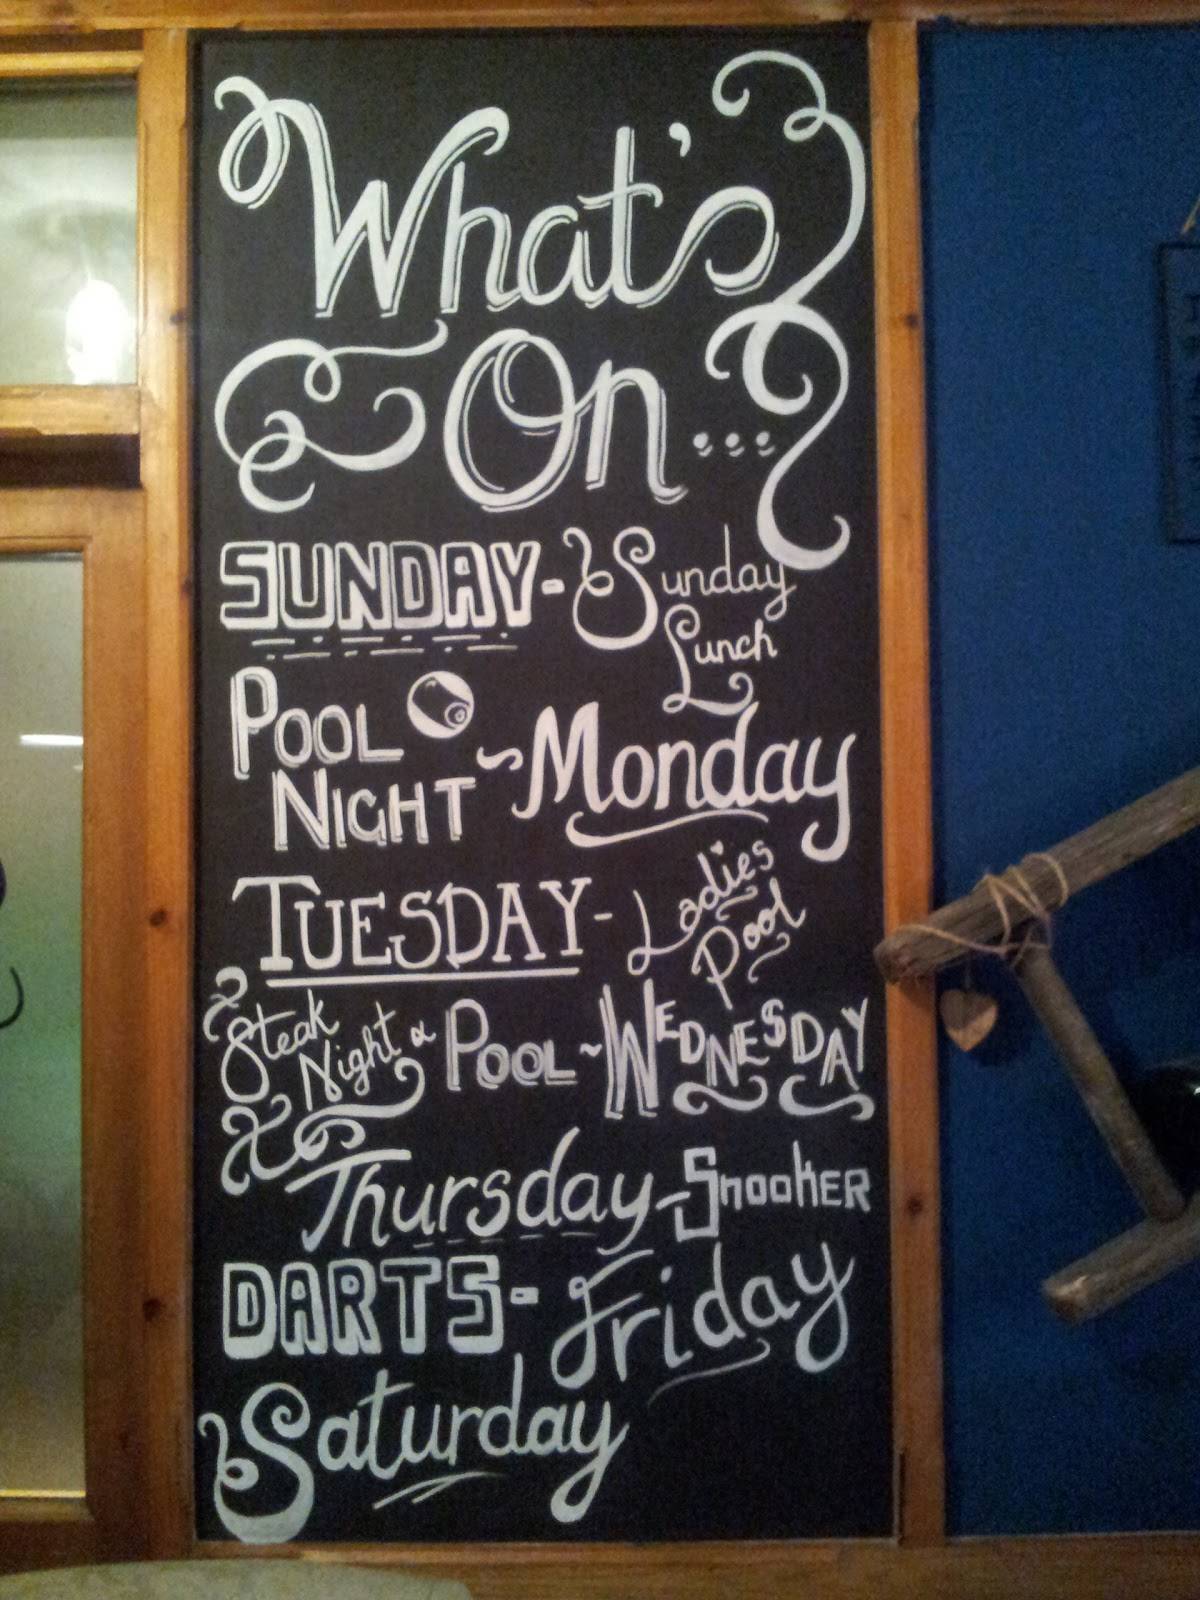 What's
On...
SUNDAY - Sunday
Lunch
POOL
NIGHT ~ Monday
TUESDAY - Ladies
Pool
Steak
Night & POOL ~ WEDNESDAY
Thursday - SnooKER
DARTS - Friday
Saturday